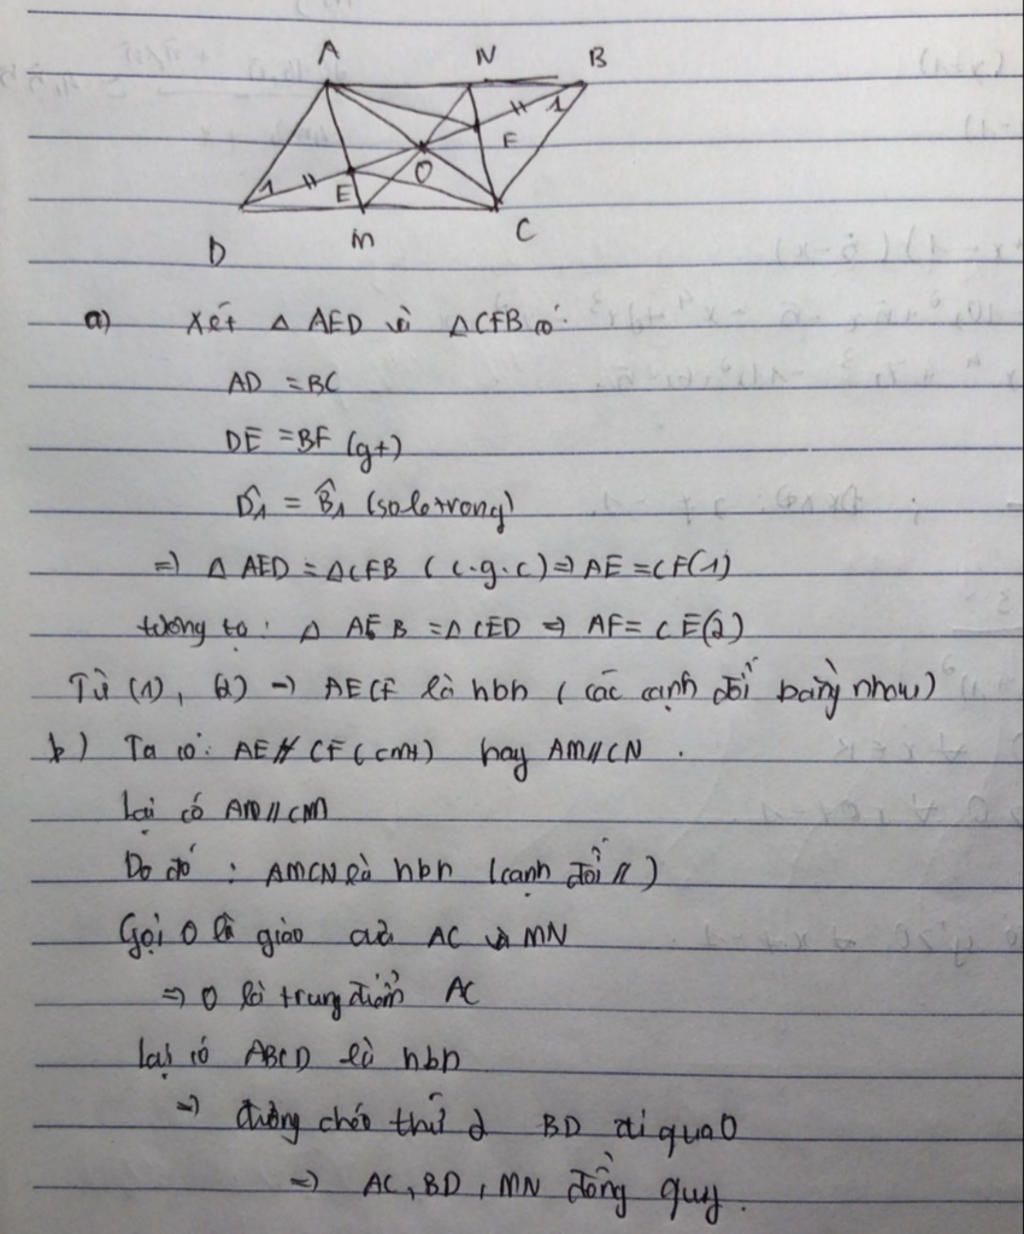 A N B
1
F
O
1
E
D M C
a) Xét Δ AED và ΔCFB có:
AD = BC
DE = BF (gt)
D̂1 = B̂1 (so le trong)
=) Δ AED = ΔCFB ( c.g.c) =) AE = CF(1)
tương tự: Δ AFB = Δ CED =) AF = CE(2)
Từ (1), (2) -) AECF là hbh ( các cạnh đối bằng nhau)
b) Ta có: AE // CF (cmt) hay AM//CN .
Lại có AN // CM
Do đó : AMCN là hbh (cạnh đối //)
Gọi O là giao của AC và MN
=) O là trung điểm AC
Lại có ABCD là hbh
=) đường chéo thứ 2 BD đi qua O
=) AC, BD, MN đồng quy.